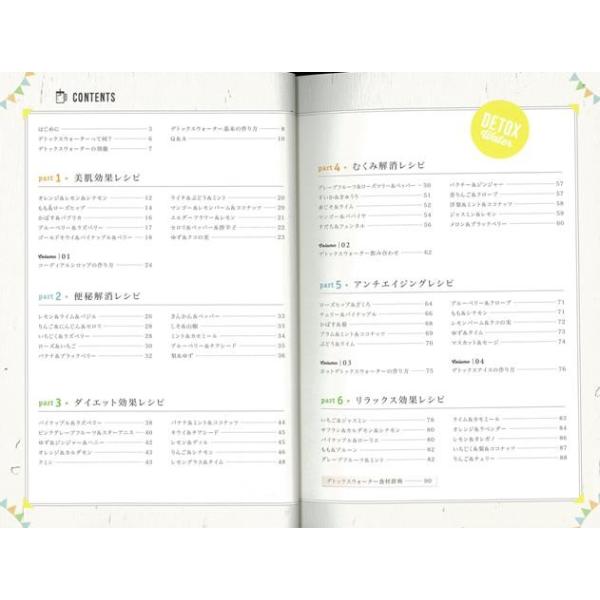 CONTENTS
はじめに 3
デトックスウォーターって何？ 6
デトックスウォーターの効能 7
デトックスウォーター基本の作り方 8
Q&A 10
part 1・美肌効果レシピ
オレンジ&レモン&シナモン 12
もも&ローズヒップ 14
かぼす&パプリカ 16
ブルーベリー&ラズベリー 17
ゴールドキウイ&パイナップル&ベリー 18
ライチ&ぶどう&ミント 20
マンゴー&レモンバーム&ココナッツ 20
エルダーフラワー&レモン 21
セロリ&ペッパー&唐辛子 22
ゆず&クコの実 23
Column | 01
コーディアルシロップの作り方 24
part 2・便秘解消レシピ
レモン&ライム&バジル 26
りんご&にんじん&セロリ 28
いちじく&ラズベリー 29
ローズ&いちご 30
バナナ&ブラックベリー 31
きんかん&ペッパー 32
しそ&山椒 33
ミント&カモミール 34
ブルーベリー&チアシード 35
梨&ゆず 36
part 3・ダイエット効果レシピ
パイナップル&ラズベリー 38
ピンクグレープフルーツ&スターアニス 40
ゆず&ジンジャー&ハニー 42
オレンジ&カルダモン 43
クミン 43
バナナ&ミント&ココナッツ 44
キウイ&チアシード 45
レモン&ディル 46
りんご&シナモン 46
レモングラス&タイム 48
DETOX
Water
part 4・むくみ解消レシピ
グレープフルーツ&ローズマリー&ペッパー 50
すいか&きゅうり 51
赤じそ&ライム 52
マンゴー&パパイヤ 54
すだち&フェンネル 56
パクチー&ジンジャー 57
赤りんご&クローブ 57
洋梨&ミント&ココナッツ 58
ジャスミン&レモン 59
メロン&ブラックベリー 60
Column | 02
デトックスウォーター飲み合わせ 62
part 5・アンチエイジングレシピ
ローズヒップ&ざくろ 64
チェリー&パイナップル 66
かぼす& 68
プラム&ミント&ココナッツ 69
ぶどう&ライム 70
ブルーベリー&クローブ 71
もも&シナモン 71
レモンバーム&クコの実 72
ゆず&タイム 74
マスカット&セージ 74
Column | 03
ホットデトックスウォーターの作り方 75
Column | 04
デトックスアイスの作り方 76
part 6・リラックス効果レシピ
いちご&ジャスミン 78
サフラン&カルダモン&シナモン 80
パイナップル&ローリエ 80
もも&プルーン 82
グレープフルーツ&ミント 82
ライム&カモミール 83
オレンジ&ラベンダー 84
レモン&オレガノ 86
いちじく&梨&ココナッツ 87
りんご&チェリー 88
デトックスウォーター食材辞典 90